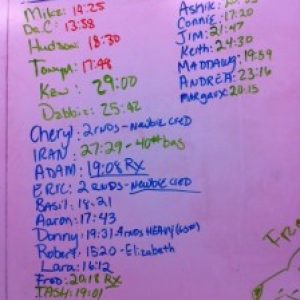 Mike: 14:25
DaC: 13:58
Hudson: 18:30
17:48
Kew: 29:00
Debbie: 25:42
Cheryl: 2 RNDS - Newbie WOD
IRAN: 27:29 - 40# bag
ADAM: 19:08 RX
ERIC: 2 RNDS - Newbie WOD
Basil: 18:21
Aaron: 17:43
Donny: 19:31 4 RNDS HEAVY
Robert: 1520 - Elizabeth
Lara: 16:12
Fred: 20:18 RX
TASH: 19:01
Ashik:
Connie: 17:20
Jim: 21:47
Keith: 24:30
MADDAWG: 19:59
ANDREA: 23:16
Margaux: 20:15